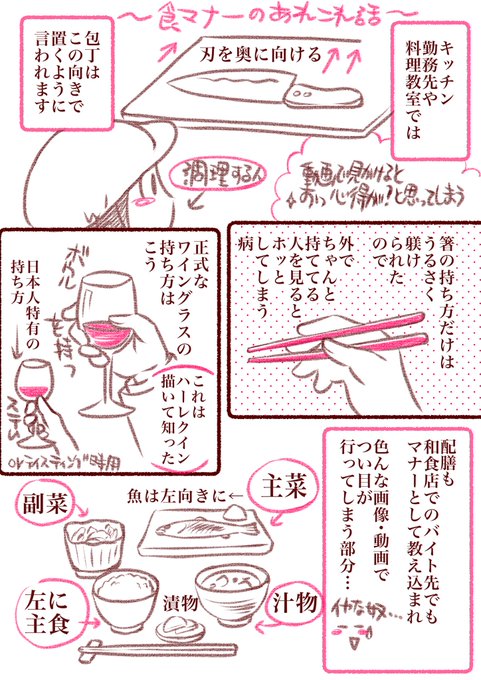 ～食マナーのあれこれ話～
キッチン
勤務先や
料理教室では
刃を奥に向ける
包丁は
この向きで
置くように
言われます
調理する人
動画で見かけると
おっ心得が?と思ってしまう
箸の持ち方だけは
うるさく
躾け
られた
ので
外で
ちゃんと
持ててる
人を見ると
ホッと
してしまう
病
正式な
ワイングラスの
持ち方は
こう
ボウルを持つ
これは
ハーレクイン
描いて知った
日本人特有の
持ち方
ステム
orテイスティング時用
配膳も
和食店でのバイト先でも
マナーとして教え込まれ
色んな画像・動画で
つい目が
行ってしまう部分…
イヤな奴…
主菜
魚は左向きに←
副菜
左に
主食
漬物
汁物